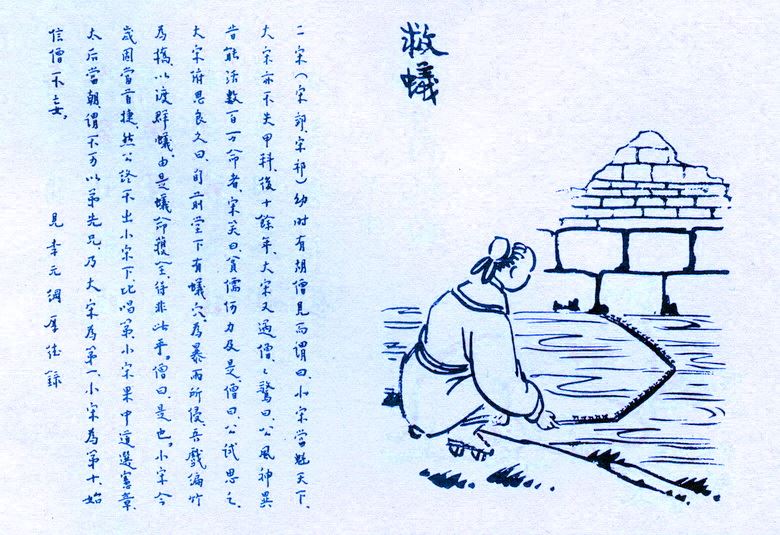 救蟻
二宋（宋郊、宋祁）幼时有胡僧見而謂曰、小宋當魁天下、
大宋亦不失甲科、後十餘年、大宋又遇僧、々驚曰、公風神異
昔能活数百万命者、宋笑曰、貧儒何力及是、僧曰、公試思之、
大宋俯思良久曰、旬前堂下有蟻穴、為暴雨所侵、吾戲編竹
為橋以渡群蟻、由是蟻命獲全、得非此乎。僧曰、是也。小宋今
歲固當首捷、然公終不出小宋下、比唱第、小宋果中首選、憲章
太后當朝、謂不可以弟先兄、乃大宋為第一、小宋為第十、始
信僧不妄。 見李元綱厚德錄